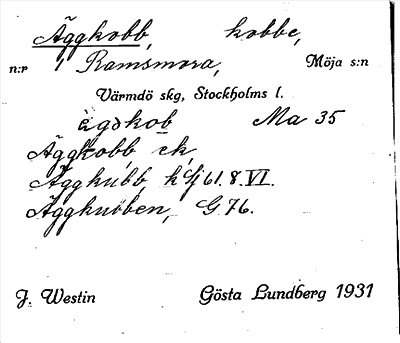 Äggkobb, kobbe,
n:r 1 Ramsmora, Möja s:n
Värmdö skg, Stockholms l.
Ma 35
Äggkobb ek,
Äggkubb, h Sj 61. 8. VI.
Äggkubben, G 76.
J. Westin Gösta Lundberg 1931